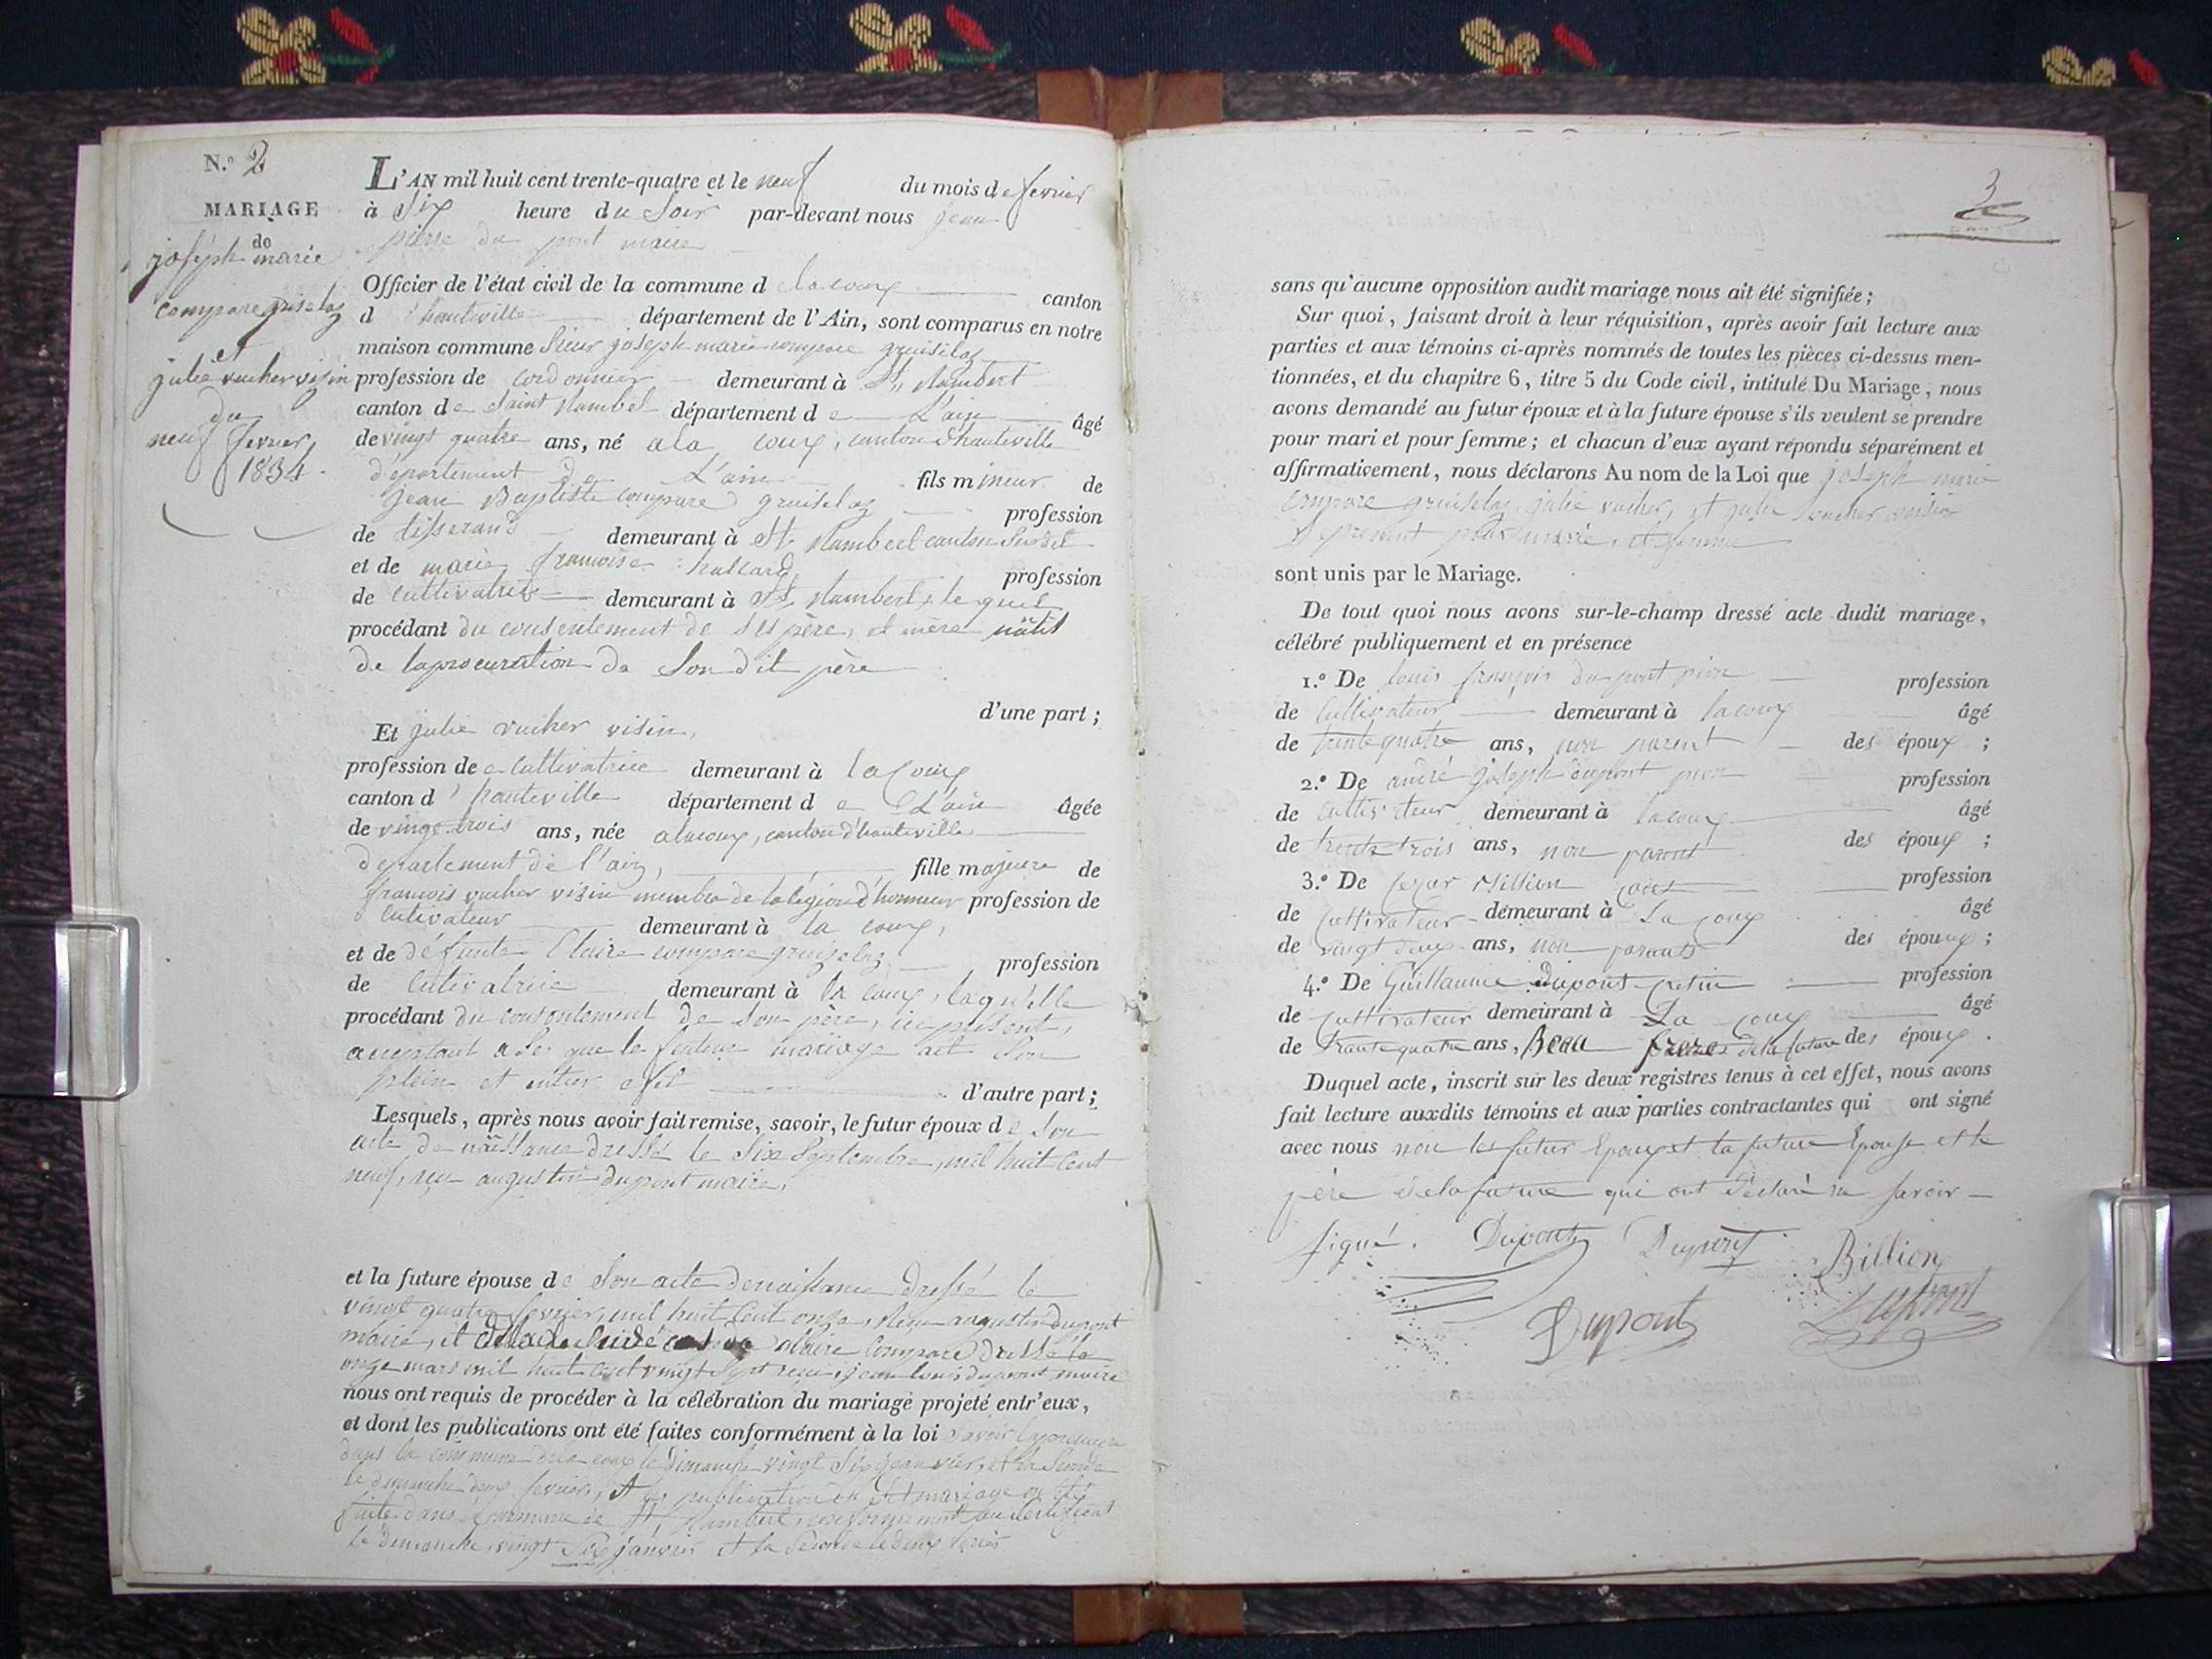 N.º 2
MARIAGE
de
joséph marie
compare gruiselaz
et
julie vucher visin
du
neuf fevrier
1834.
L'AN mil huit cent trente-quatre et le neuf du mois de fevrier
à Six heure du Soir par-devant nous jean
pierre du pont maire
Officier de l'état civil de la commune d elacoux canton
d'hauteville département de l'Ain, sont comparus en notre
maison commune Sieur joseph marie compare gruiselaz
profession de cordonnier demeurant à St Rambert
canton de Saint Rambel département de L'ain âgé
de vingt quatre ans, né ala coux, canton d'hauteville
département de L'ain fils mineur de
jean Baptiste compare gruiselaz profession
de tisserand demeurant à St Rambert canton Susdit
et de marie francoise hallard profession
de cultivatrice demeurant à St Rambert, le quel
procédant du consentement de ses père, et mère
de laprocuration de Son dit père
d'une part ;
Et julie vucher visin,
profession de cultivatrice demeurant à la Coux
canton d'hauteville département de L'ain âgée
de vingt trois ans, née alacoux, canton d'hauteville
departement de l'ain, fille majeure de
francois vucher visin membre de lalégion d'honneur profession de
cutivateur demeurant à la coux,
et de défunte Claire compare gruizelaz profession
de cutivatrice demeurant à la coux, laquelle
procédant du consentement de Son père, ici présent,
acceptant a ce que le futur mariage ait Son
plein et entier efet d'autre part ;
Lesquels, après nous avoir fait remise, savoir, le futur époux de Son
acte de naissance dressé le Six Septembre, mil huit Cent
neuf, reçu augustin dupont maire,
et la future épouse de Son acte denaissance dressé le
vingt quatre fevrier, mil huit Cent onze, reçu augustin dupont
maire, et claire Compare dressé le
onze mars mil huit cent vingt Sept reçu jean louis dupont maire
nous ont requis de procéder à la célébration du mariage projeté entr'eux,
et dont les publications ont été faites conformément à la loi Savoir lapremiere
dans la commune dela coux le dimanche vingt Six janvier, et la Seconde
le dimanche deux fevrier, et publication du dit mariage on été
faites dans commune de St Rambert, conformement au certificat
le dimanche vingt Six janvier et la Seconde le deux
3
sans qu'aucune opposition audit mariage nous ait été signifiée ;
Sur quoi, faisant droit à leur réquisition, après avoir fait lecture aux
parties et aux témoins ci-après nommés de toutes les pièces ci-dessus men-
tionnées, et du chapitre 6, titre 5 du Code civil, intitulé Du Mariage, nous
avons demandé au futur époux et à la future épouse s'ils veulent se prendre
pour mari et pour femme ; et chacun d'eux ayant répondu séparément et
affirmativement, nous déclarons Au nom de la Loi que joseph marie
compare gruiselaz, julie vucher, et julie vucher voisin
Se prenant pour marié, et femme
sont unis par le Mariage.
De tout quoi nous avons sur-le-champ dressé acte dudit mariage,
célébré publiquement et en présence
1.º De louis françois du pont pion profession
de Cultivateur demeurant à lacoux âgé
de trente quatre ans, non parent des époux ;
2.º De andré joseph dupont pion profession
de cultivateur demeurant à lacoux âgé
de trente trois ans, non parent des époux ;
3.º De Cezar Billion profession
de Cultivateur demeurant à La Coux âgé
de vingt deux ans, non parents des époux ;
4.º De Guillaume Dupont cretin profession
de Cultivateur demeurant à La Coux âgé
de trante quatre ans, Beau frere de la future des époux .
Duquel acte, inscrit sur les deux registres tenus à cet effet, nous avons
fait lecture auxdits témoins et aux parties contractantes qui ont signé
avec nous non les futur Epoux et la future Epouse et le
père dela future qui ont déclaré ne savoir
signé. Dupont Dupont Billion
Dupont Dupont